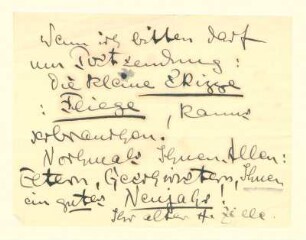 Wenn ich bitten darf
um Postsendung:
Die kleine Skizze
: Fliege, kann's
verbrauchen.
Nochmals Ihnen Allen:
Eltern, Geschwistern, Ihnen
ein gutes Neujahr!
Ihr alter H. Zille.